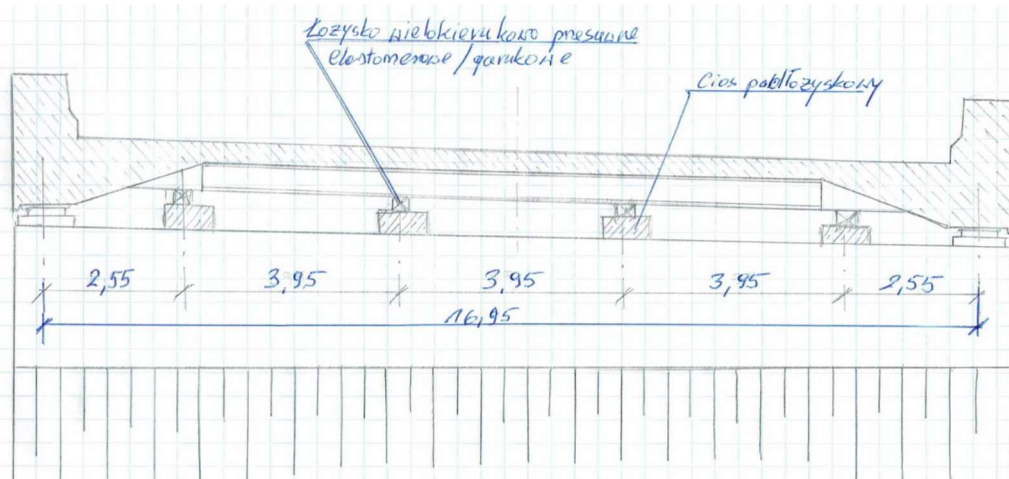 Łożysko wielokierunkowo przesuwne
elastomerowe / garnkowe
Cios podłożyskowy
2,55 3,95 3,95 3,95 2,55
16,95